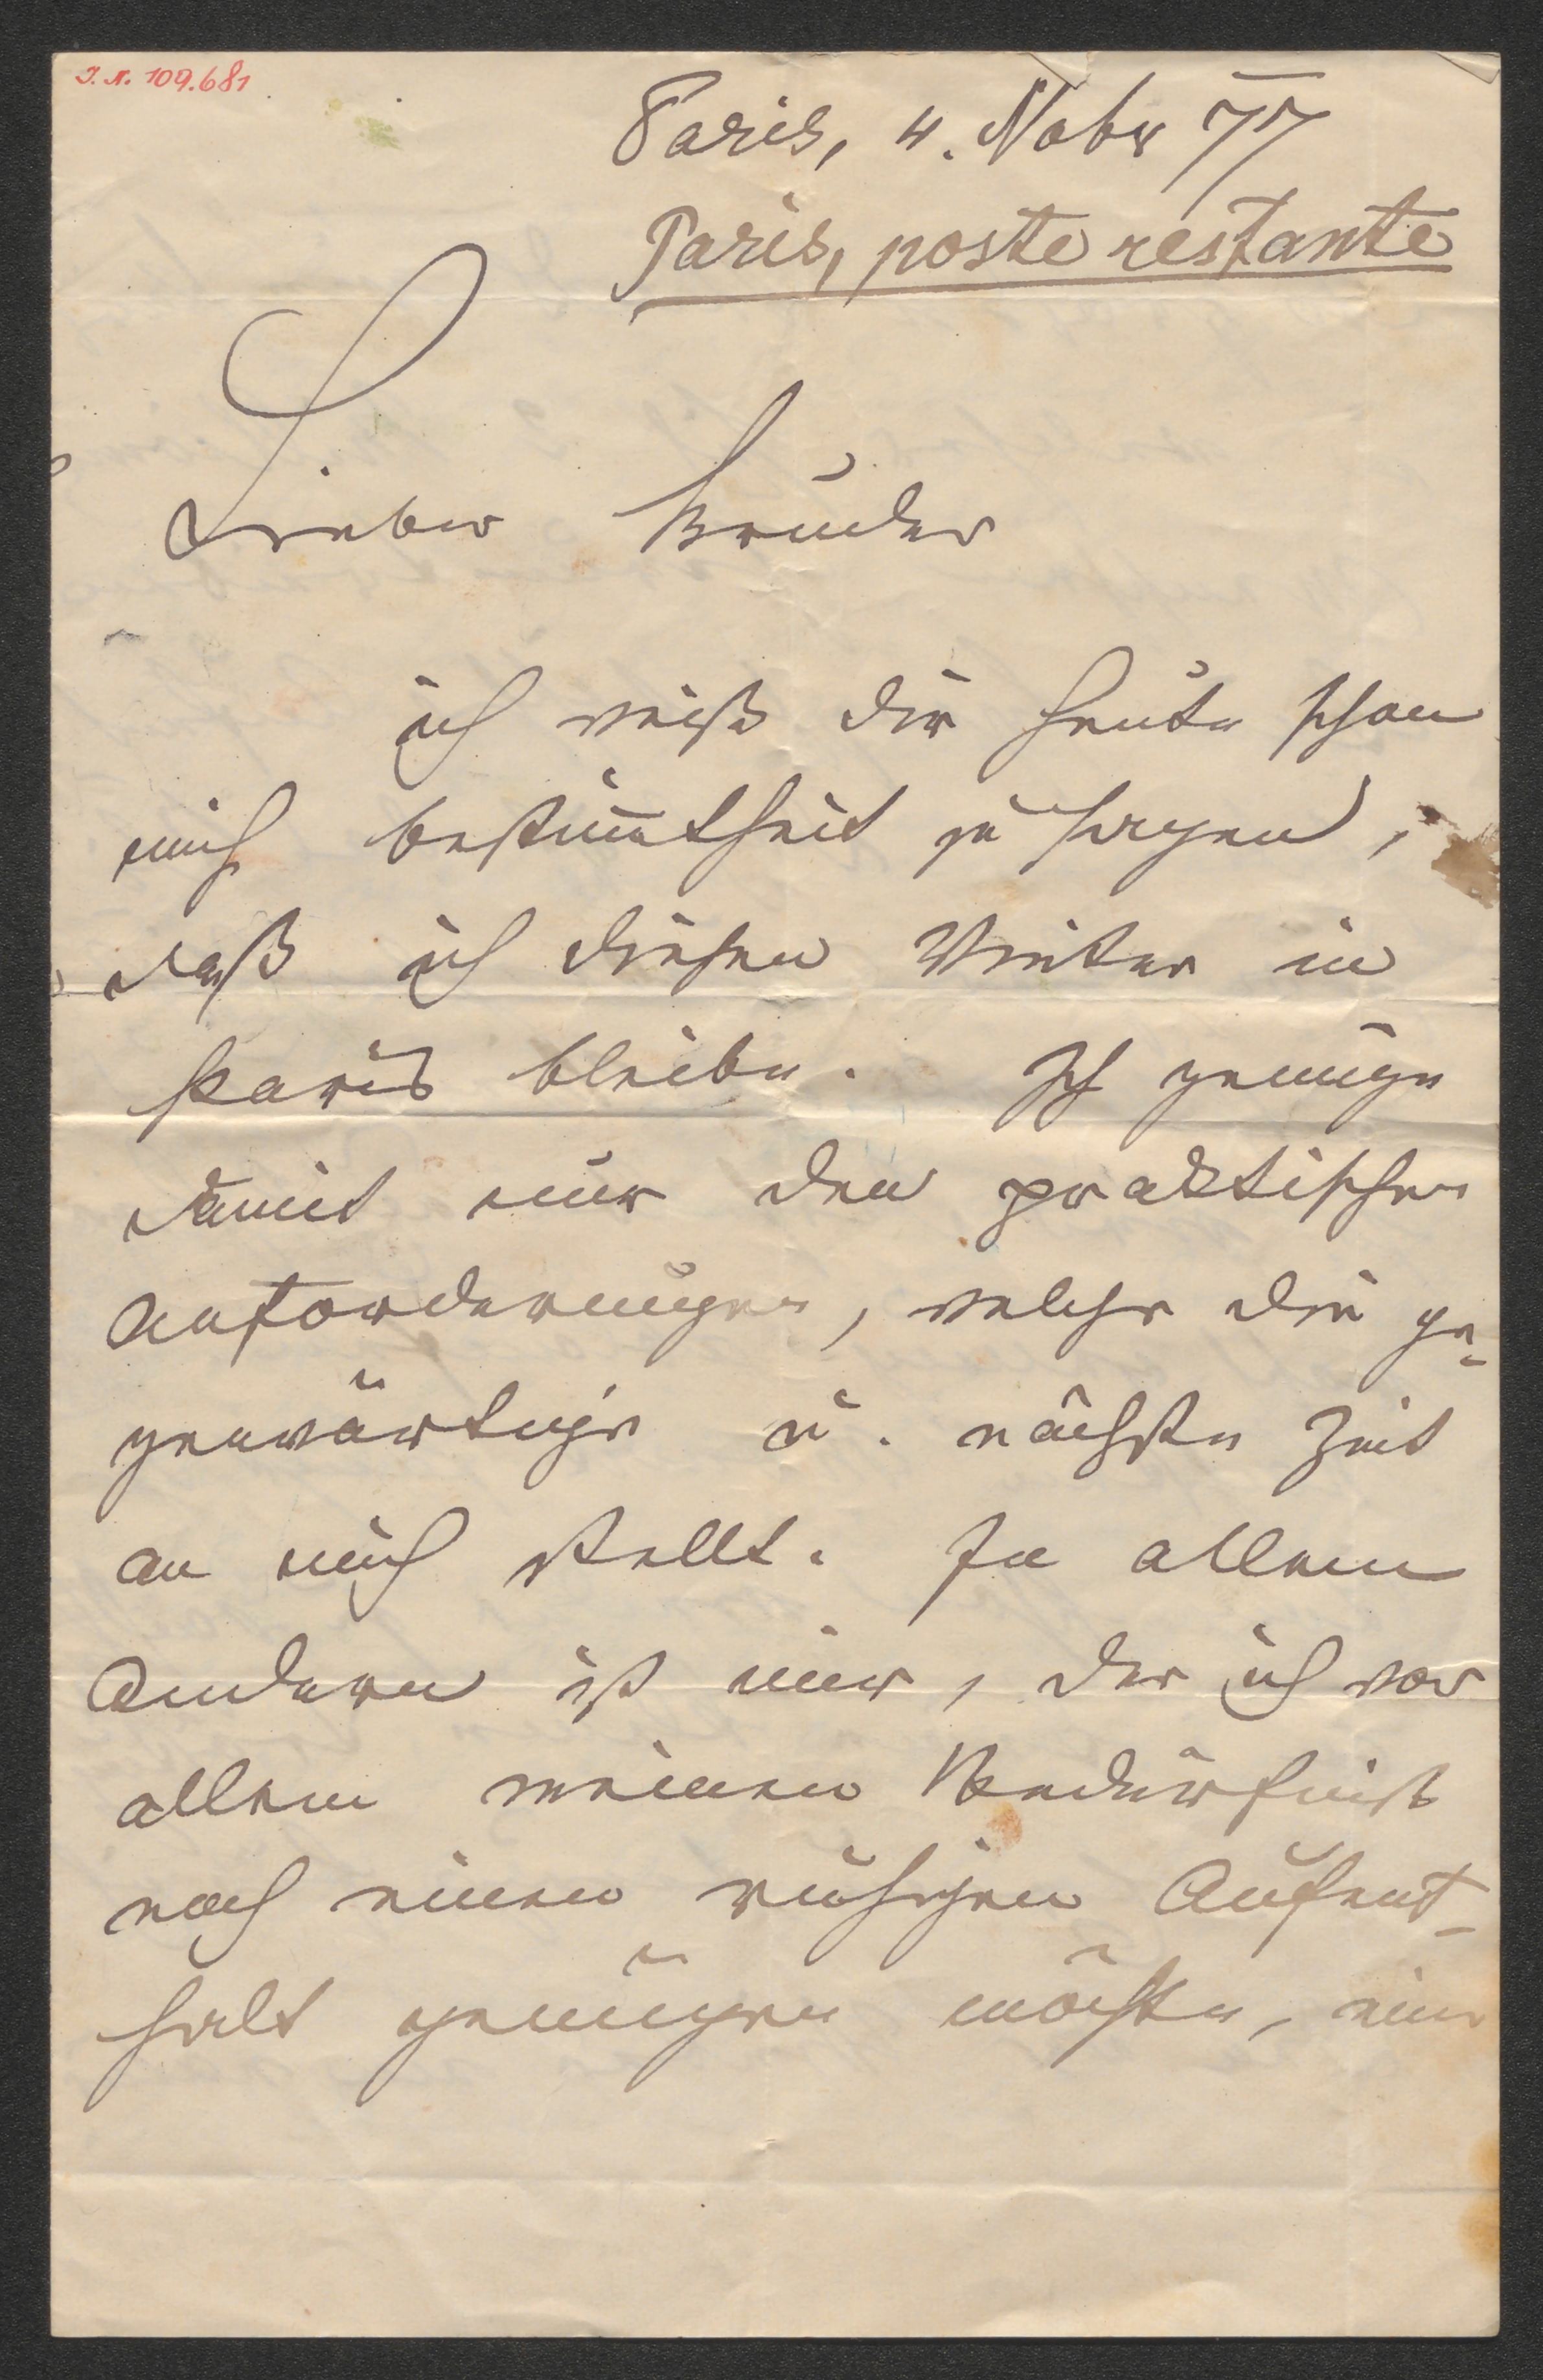 J. N. 109.681
Paris, 4. Nobr 77
Paris, poste restante
Lieber Bruder
ich weiß dir heute schon
mich bestimtheit zu sagen,
daß ich diesen Winter in
Paris bleibe. Ich genüge
damit nur den praktischen
Anforderungen, welche die ge-
genwärtige u. nächste Zeit
an mich stellt. In allem
Andern ist mir, der ich vor
allem meinen Bedürfniß
nach einen ruhigen Aufent-
halt genügen möchte, eine